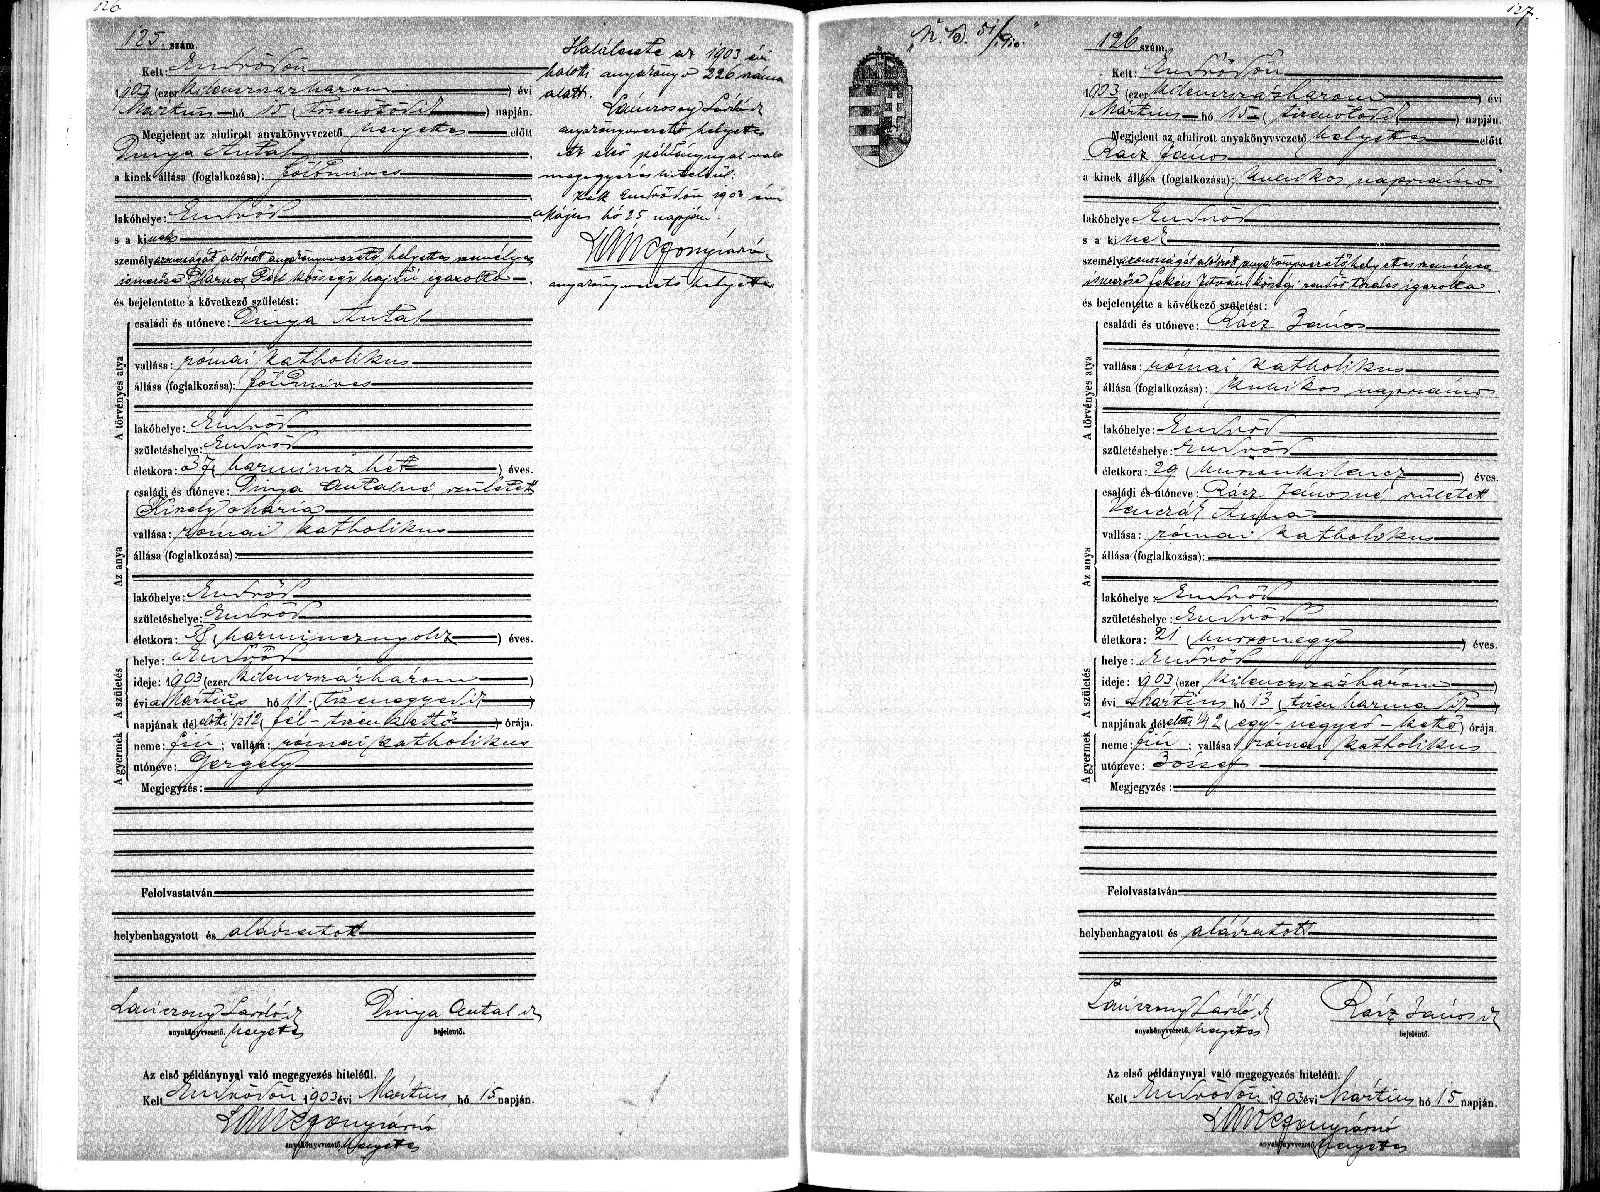 126
125. szám.
Kelt: Endrődön
1903 (ezer kilenczszázhárom) évi
Martius hó 15 (tizenötödik) napján.
Megjelent az alulirott anyakönyvvezető helyettes előtt
Dinya Antal
a kinek állása (foglalkozása): földmives
lakóhelye: Endrőd
s a kinek
személyazonosságát alólirott anyakönyvvezető helyettes személyes
ismerőse Pál községi hajdú igazolta
és bejelentette a következő születést:
A törvényes atya
családi és utóneve: Dinya Antal
vallása: római katholikus
állása (foglalkozása): földmives
lakóhelye: Endrőd
születéshelye: Endrőd
életkora: 37 (harminczhét) éves.
Az anya
családi és utóneve: Dinya Antalné született
Király Mária
vallása: római katholikus
állása (foglalkozása):
lakóhelye: Endrőd
születéshelye: Endrőd
életkora: 38 (harmincznyolcz) éves.
A születés
helye: Endrőd
ideje: 1903 (ezer kilenczszázhárom)
évi Martius hó 11. (tizenegyedik)
napjának dél előtti 1/2 12 (fél-tizenkettő) órája.
A gyermek
neme: fiú; vallása: római katholikus
utóneve: Gergely
Megjegyzés:
Felolvastatván
helybenhagyatott és aláiratott
Lánczony László
Dinya Antal
anyakönyvvezető, helyettes
bejelentő.
Az első példánynyal való megegyezés hiteléül.
Kelt Endrődön 1903 évi Martius hó 15 napján.
anyakönyvvezető helyettes
Halálesete az 1903 évi
halotti anyakönyv 226 száma
alatt.
László
anyakönyvvezető helyettes
Az első példánynyal való
megegyezés hiteléül.
Kelt Endrődön 1903 évi
Május hó 25 napján.
anyakönyvvezető helyettes
127.
126 szám.
Kelt: Endrődön
1903 (ezer kilenczszázhárom) évi
Martius hó 15 (tizenötödik) napján.
Megjelent az alulirott anyakönyvvezető helyettes előtt
Rácz János
a kinek állása (foglalkozása): kubikos napszámos
lakóhelye Endrőd
s a kinek
személyazonosságát alólirott anyakönyvvezető helyettes személyes
ismerőse István községi rendőr igazolta
és bejelentette a következő születést:
A törvényes atya
családi és utóneve: Rácz János
vallása: római katholikus
állása (foglalkozása): kubikos napszámos
lakóhelye: Endrőd
születéshelye: Endrőd
életkora: 29 (huszonkilencz) éves.
Az anya
családi és utóneve: Rácz Jánosné, született
Anna
vallása: római katholikus
állása (foglalkozása):
lakóhelye: Endrőd
születéshelye: Endrőd
életkora: 21 (huszonegy) éves.
A születés
helye: Endrőd
ideje: 1903 (ezer kilenczszázhárom)
évi Mártius hó 13 (tizenharmadik)
napjának dél előtti 1/4 2 (egy-negyed-kettő) órája.
A gyermek
neme: fiú; vallása római katholikus
utóneve: József
Megjegyzés:
Felolvastatván
helybenhagyatott és aláiratott
Lánczony László
Rácz János
anyakönyvvezető, helyettes
bejelentő.
Az első példánynyal való megegyezés hiteléül.
Kelt Endrődön 1903 évi Mártius hó 15 napján.
anyakönyvvezető helyettes